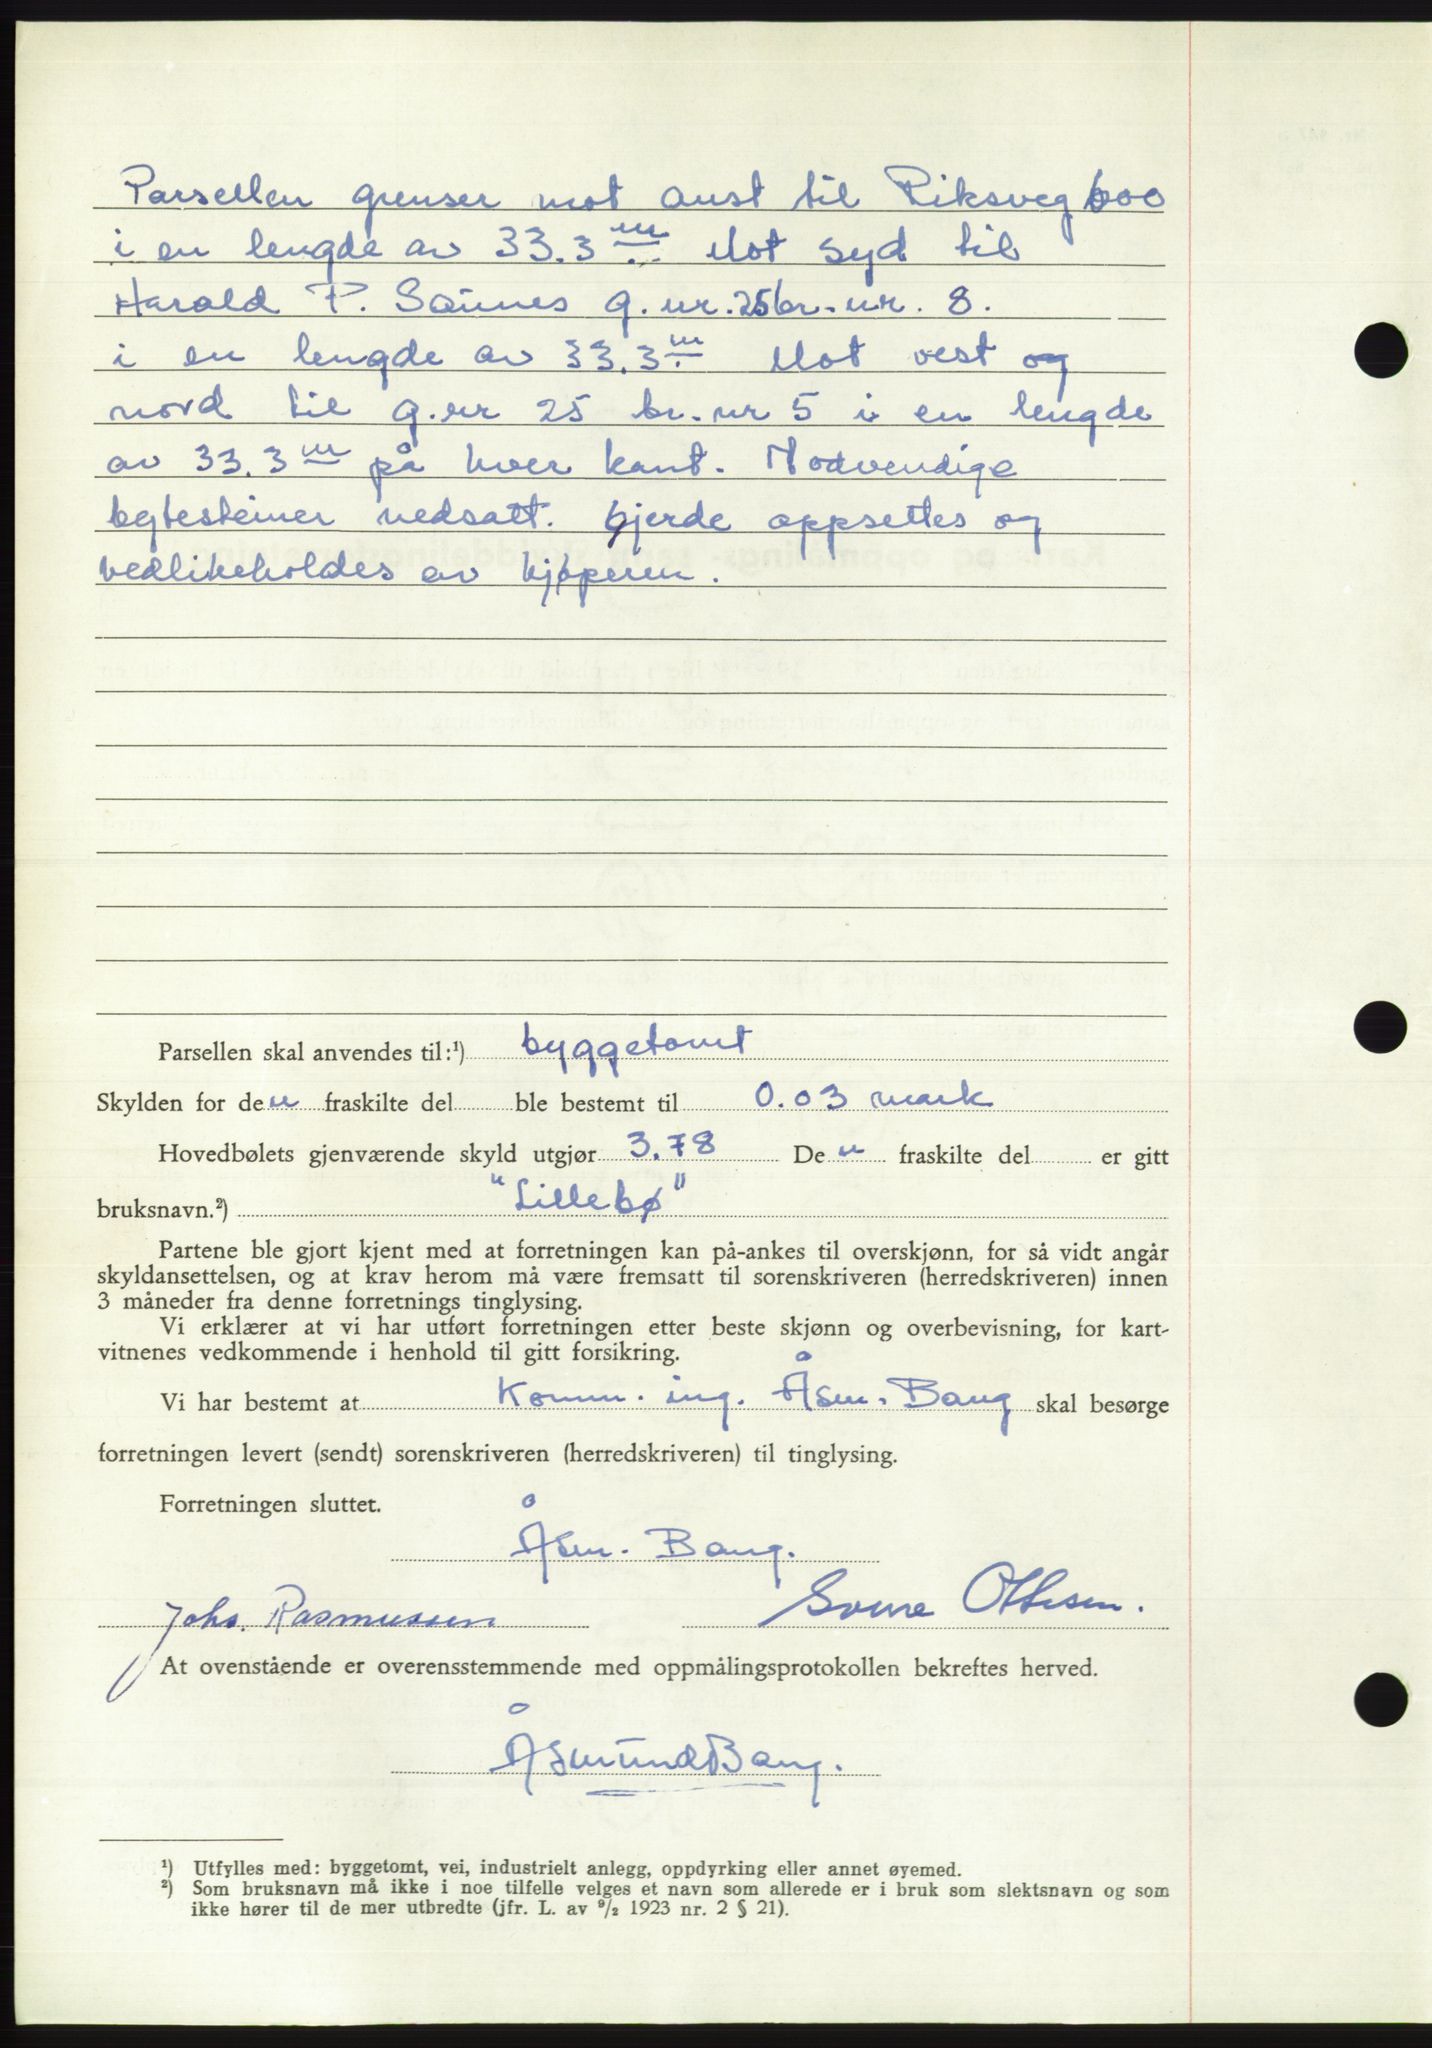 Parsellen grenser mot aust til Riksveg 600
i en lengde av 33.3 m. Mot syd til
Harald P. Saunes g. nr. 25 br. nr. 8.
i en lengde av 33.3 m. Mot vest og
nord til g. nr 25 br. nr 5 i en lengde
av 33.3 m på hver kant. Nødvendige
bytesteiner nedsatt. Gjerde oppsettes og
vedlikeholdes av kjøperen.
Parsellen skal anvendes til:¹) byggetomt
Skylden for den fraskilte del ble bestemt til 0.03 mark
Hovedbølets gjenværende skyld utgjør 3.78 Den fraskilte del er gitt
bruksnavn.²) "Lillebø"
Partene ble gjort kjent med at forretningen kan på-ankes til overskjønn, for så vidt angår
skyldansettelsen, og at krav herom må være fremsatt til sorenskriveren (herredskriveren) innen
3 måneder fra denne forretnings tinglysing.
Vi erklærer at vi har utført forretningen etter beste skjønn og overbevisning, for kart-
vitnenes vedkommende i henhold til gitt forsikring.
Vi har bestemt at Komm. ing. Åsm. Bang skal besørge
forretningen levert (sendt) sorenskriveren (herredskriveren) til tinglysing.
Forretningen sluttet.
Åsm. Bang.
Johs. Rasmussen Sverre Ottesen.
At ovenstående er overensstemmende med oppmålingsprotokollen bekreftes herved.
Åsmund Bang.
¹) Utfylles med: byggetomt, vei, industrielt anlegg, oppdyrking eller annet øyemed.
²) Som bruksnavn må ikke i noe tilfelle velges et navn som allerede er i bruk som slektsnavn og som
ikke hører til de mer utbredte (jfr. L. av ⁹/₂ 1923 nr. 2 § 21).